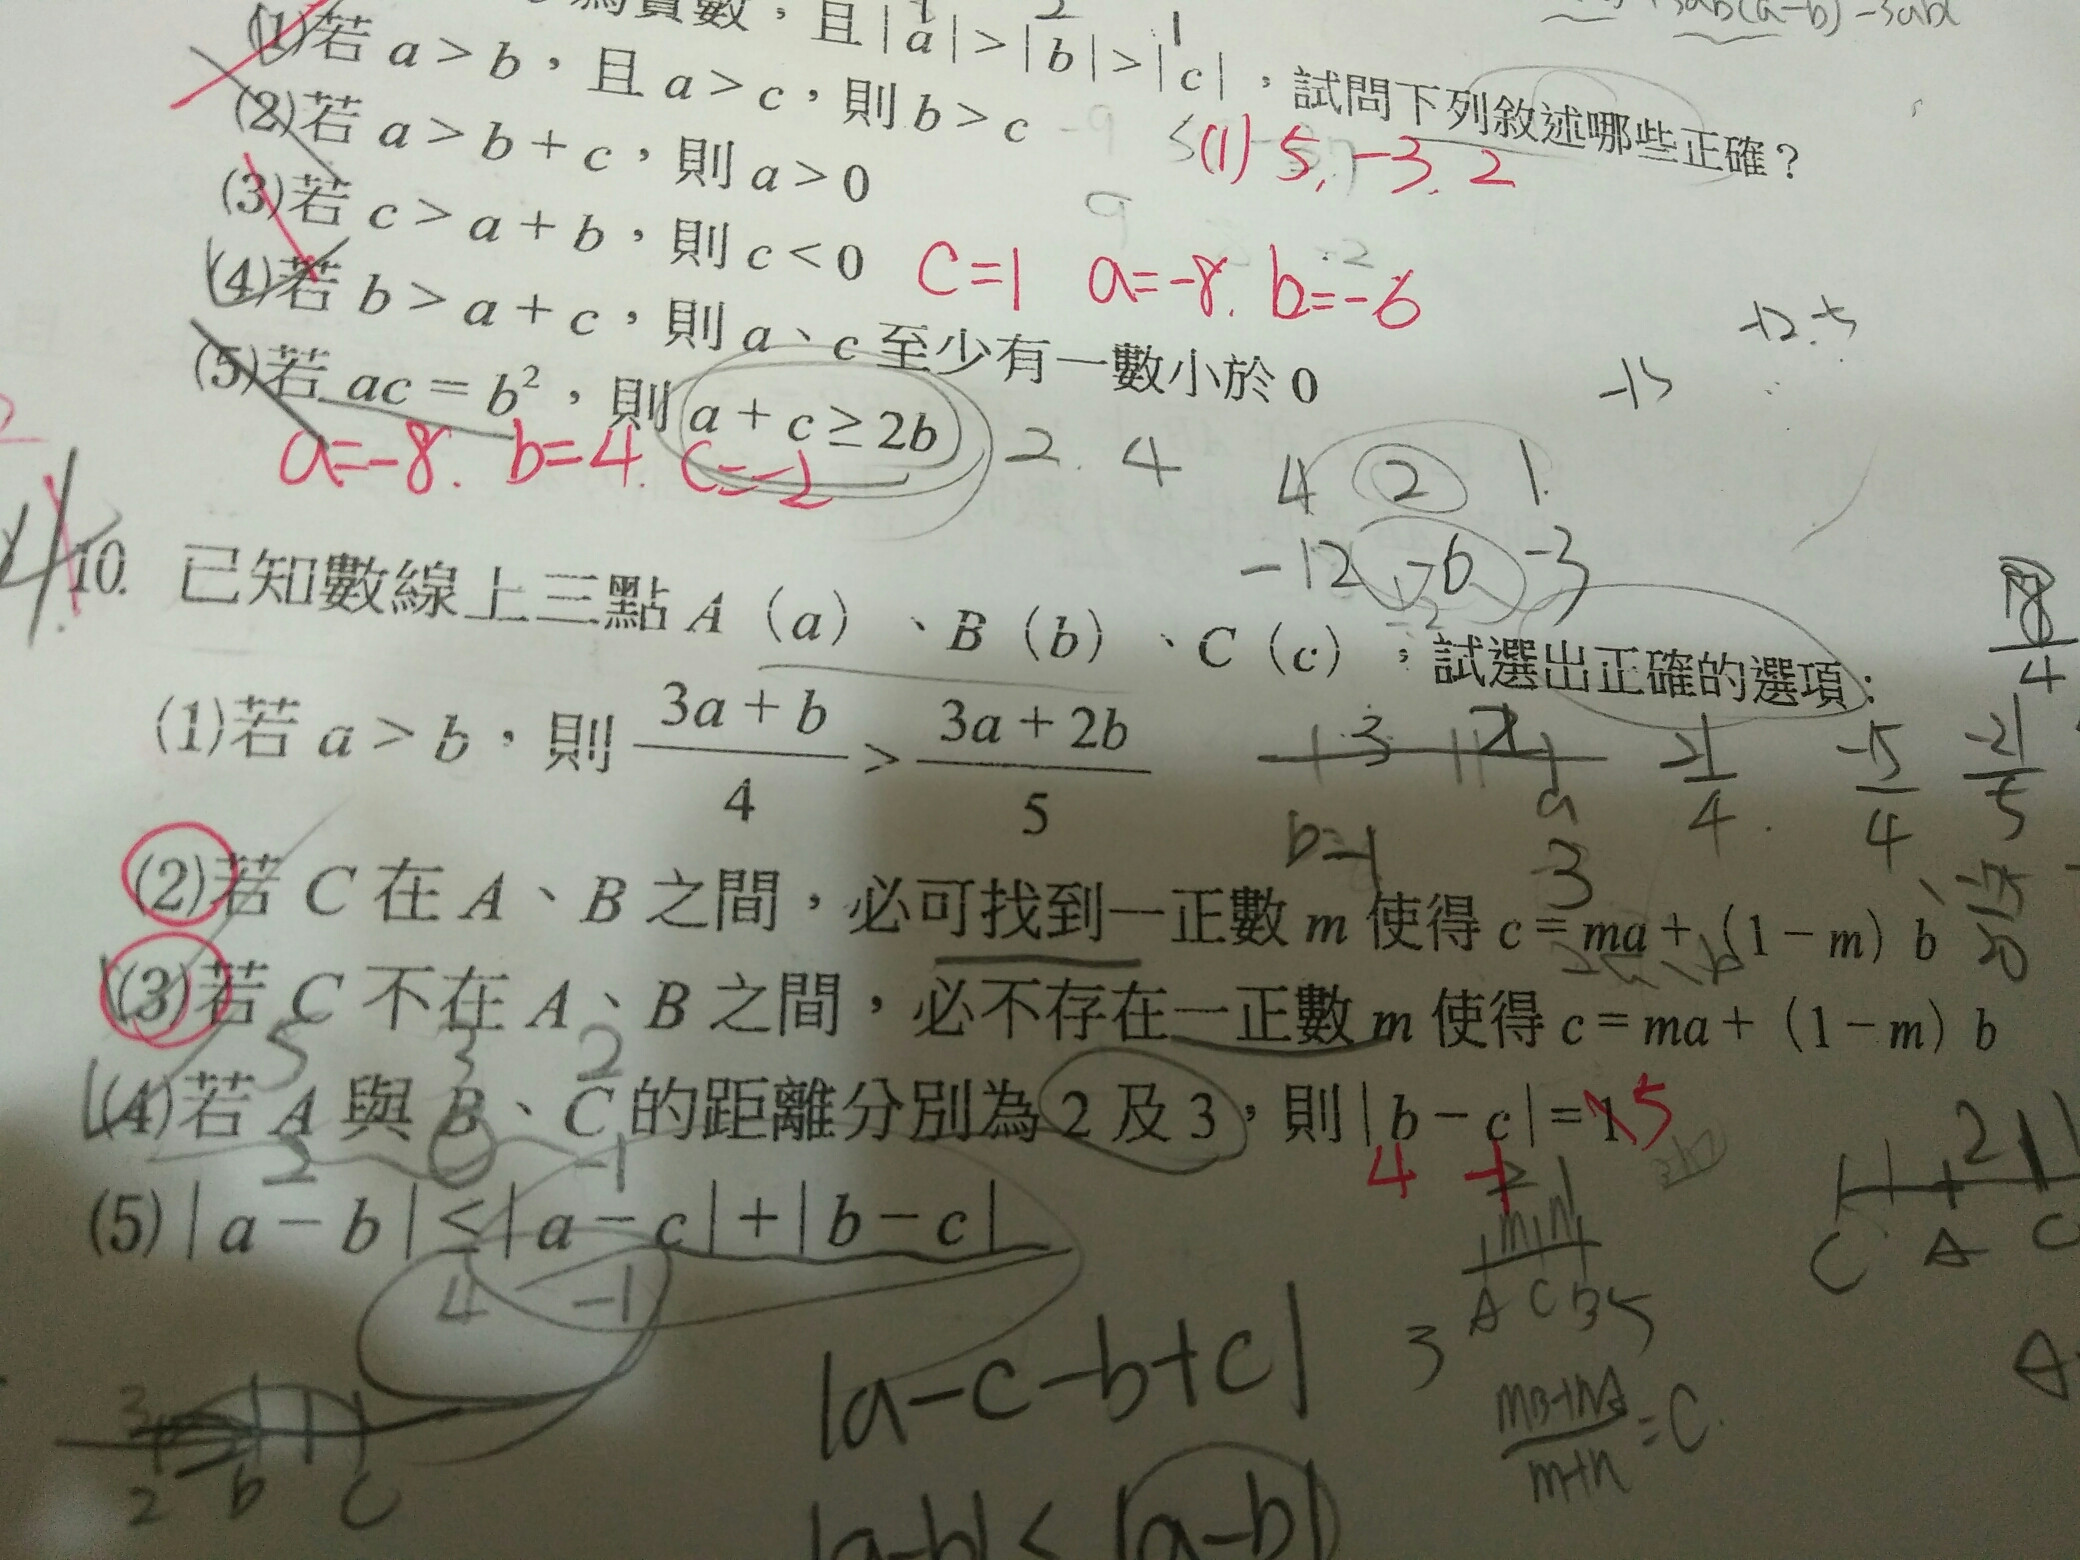 3ab(a-b)-3abc
為實數，且|a|>|b|>|c|，試問下列敘述哪些正確？
(1)若 a > b，且 a > c，則 b > c
(1) 5, -3, 2
(2)若 a > b + c，則 a > 0
(3)若 c > a + b，則 c < 0
C=1 a=-8. b=-6
(4)若 b > a + c，則 a、c 至少有一數小於 0
(5)若 ac = b²，則 a + c ≥ 2b
a=-8. b=4. c=-2
2. 4
4 2 1
-12 -6 -3
10. 已知數線上三點 A（a）、B（b）、C（c），試選出正確的選項：
(1)若 a > b，則 (3a + b)/4 > (3a + 2b)/5
b=-1 a 3
(2)若 C 在 A、B 之間，必可找到一正數 m 使得 c = ma +（1 - m）b
(3)若 C 不在 A、B 之間，必不存在一正數 m 使得 c = ma +（1 - m）b
5 3 2
(4)若 A 與 B、C 的距離分別為 2 及 3，則 | b - c | = 1 5
2 0 -1
4 -1
(5) | a - b | ≤ | a - c | + | b - c |
4 -1
m n
A C B
C A C
|a-c-b+c|
3 5
(mB+nA)/(m+n) = C
2 b c
|a-b| < |a-b|